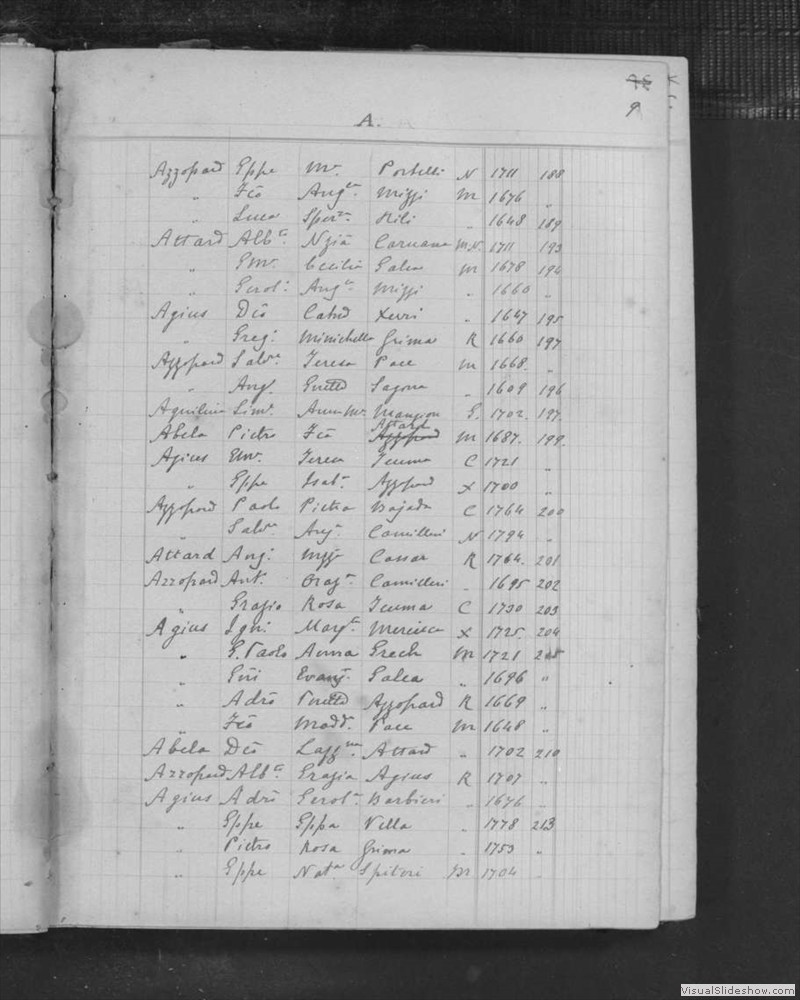 A.
9
Azzopard Eppe Mª. Portelli N 1711 188
" Fcõ Angca Mizzi M 1676 "
" Luca Sperza Xili " 1648 189
Attard Albto Nziã Caruana M.N. 1711 193
" Emle Cecilia Galea M 1678 194
" Gerolº Angca Mizzi " 1660 "
Agius Dcõ Catnd Xerri " 1647 195
" Gregº Minichella Grima R 1660 197
Azzopard Salvre Teresa Pace M 1668. "
" Angº Enettd Sagona " 1609 196
Aquilina Simº. Anna Mª. Mangion G. 1702. 197.
Abela Pietro Fcã Attard M 1687. 199.
Agius Emle Teresa Teuma C 1721 "
" Eppe Isabª. Azzopard X 1700 "
Azzopard Paolo Pietra Bajada C 1764 200
" Salvre Angª. Camilleri N 1794 "
Attard Angº Cassar R 1764. 201
Azzopard Antº. Orazª. Camilleri " 1695 202
" Grazio Rosa Teuma C 1730 203
Agius Ignº. Margta Mercieca X 1725. 204
" G. Paolo Anna Grech M 1721 205
" Giõi Evangª. Galea " 1696 "
" Adrõ Azzopard R 1669 "
" Fcõ Maddª. Pace M 1648 "
Abela Dcõ Lazzna Attard " 1702 210
Azzopard Albto Grazia Agius R 1707 "
Agius Adrõ Gerolma Barbieri " 1676 "
" Eppe Eppa Vella " 1778 213
" Pietro Rosa Grima " 1753 "
" Eppe Natla Spiteri M 1704 "
VisualSlideshow.com